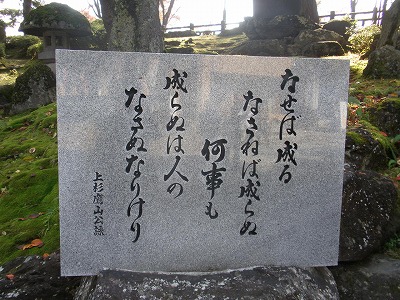 なせば成る
なさねば成らぬ
何事も
成らぬは人の
なさぬなりけり
上杉鷹山公録